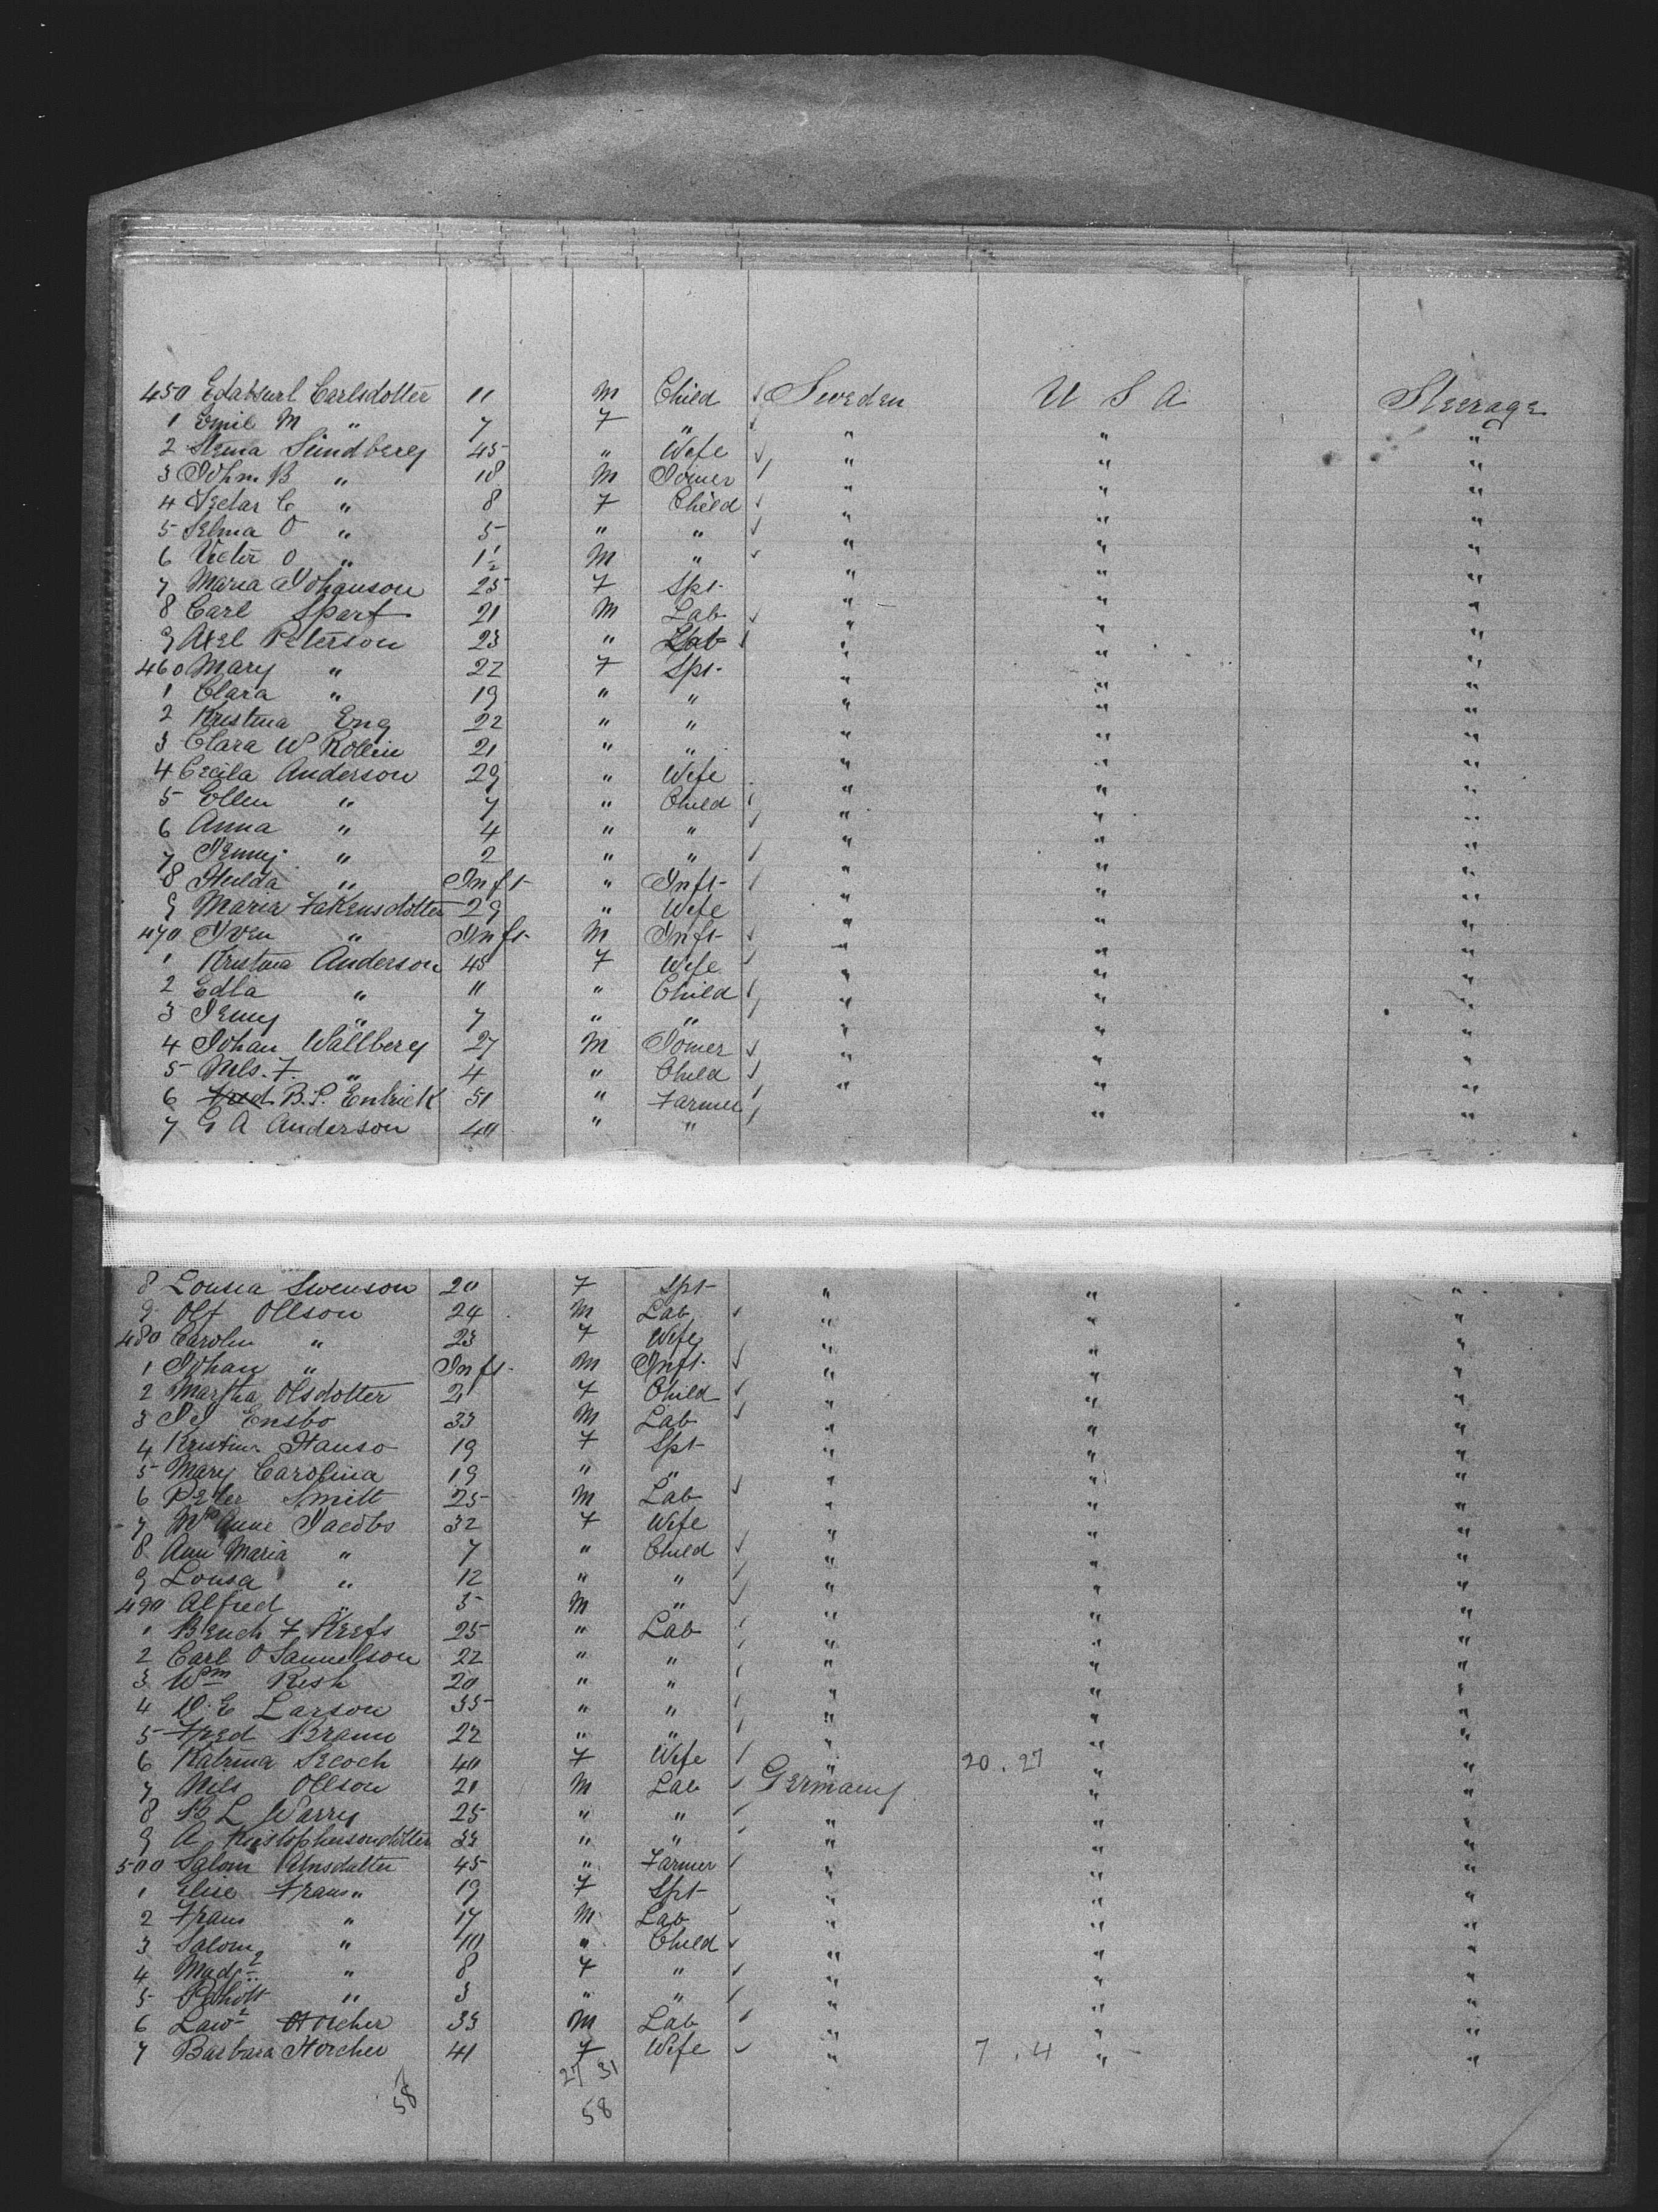 450 Carlsdotter 11 M Child ✓ Sweden U S A Steerage
1 Emil M " 7 F " ✓ " " "
2 Sundberg 45 " Wife ✓ " " "
3 John B " 18 M Joiner ✓ " " "
4 C " 8 F Child ✓ " " "
5 Selma O " 5 " " ✓ " " "
6 Victor O " 1½ M " ✓ " " "
7 Maria Johanson 25 F Spt " " "
8 Carl Sparf 21 M Lab ✓ " " "
9 Axel Peterson 23 " Lab ✓ " " "
460 Mary " 22 F Spt " " "
1 Clara " 19 " " " " "
2 Kristina Eng 22 " " " " "
3 Clara W Rollin 21 " " " " "
4 Cecila Anderson 29 " Wife " " "
5 Ellen " 7 " Child ✓ " " "
6 Anna " 4 " " ✓ " " "
7 Jenny " 2 " " ✓ " " "
8 Hulda " Inft " Inft ✓ " " "
9 Maria Fakensdotter 29 " Wife " " "
470 Iven " Inft M Inft ✓ " " "
1 Kristina Anderson 45 F Wife ✓ " " "
2 Edla " 11 " Child ✓ " " "
3 Jenny " 7 " " " " "
4 Johan Wallberg 27 M Joiner ✓ " " "
5 Nils. F. " 4 " Child ✓ " " "
6 Fred B.P. Entrick 51 " Farmer ✓ " " "
7 G A Anderson 40 " " " "
8 Lousia Swenson 20 F Spt " " "
9 Olf Ollson 24 M Lab ✓ " " "
480 Carolin " 23 F Wife " " "
1 Johan " Inft M Inft ✓ " " "
2 Martha Olsdotter 2 F Child ✓ " " "
3 Ensbo 33 M Lab ✓ " " "
4 Kristina Hanso 19 F Spt " " "
5 Mary Carolina 19 " " " " "
6 Peter Smitt 25 M Lab ✓ " " "
7 Mrs Anne Jacobs 32 F Wife " " "
8 Ann Maria " 7 " Child ✓ " " "
9 Lousa " 12 " " ✓ " " "
490 Alfred " 5 M " ✓ " " "
1 F 25 " Lab ✓ " " "
2 Carl O Samuelson 22 " " ✓ " " "
3 Wm Resh 20 " " ✓ " " "
4 E Larson 35 " " ✓ " " "
5 Fred Braun 22 " " ✓ " " "
6 Katrina 40 F Wife ✓ " 20.27 " "
7 Nils Ollson 21 M Lab ✓ Germany " "
8 B L Warry 25 " " ✓ " " "
9 A Kristophersondotter 33 " " ✓ " " "
500 Salom 45 " Farmer ✓ " " "
1 Elise Frans " 19 F Spt " " "
2 Frans " 17 M Lab ✓ " " "
3 Salom " 10 " Child ✓ " " "
4 " 8 F " ✓ " " "
5 " 3 " " ✓ " " "
6 Horcher 33 M Lab ✓ " " "
7 Barbara Horcher 41 F Wife ✓ " 7.4 " "
58 27 31
58